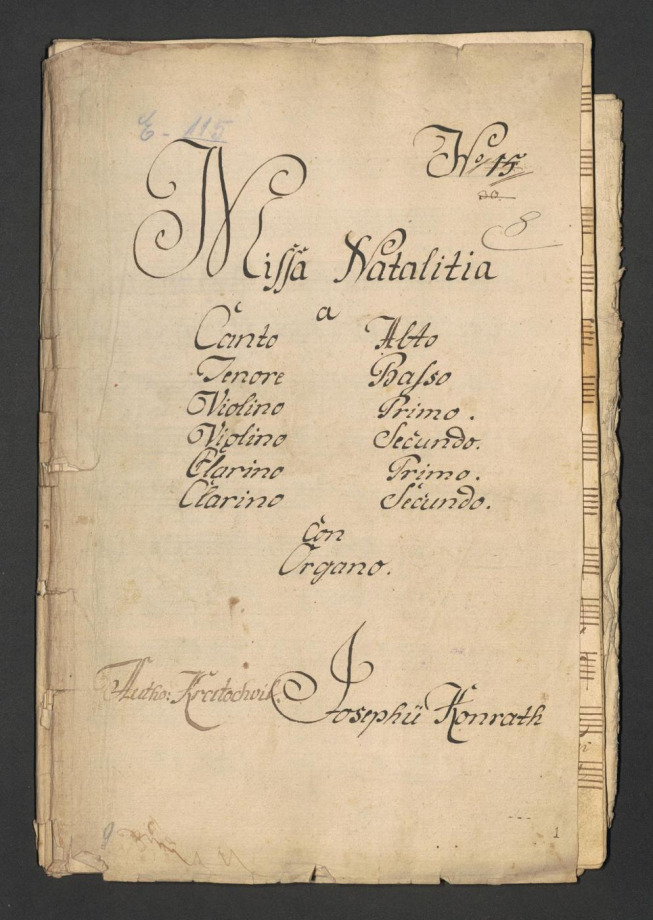 E - 115
No 15
8
Missa Natalitia
a
Canto Alto
Tenore Basso
Violino Primo.
Violino Secundo.
Clarino Primo.
Clarino Secundo.
Con
Organo.
Autho: Kratochvil. Josephü Konrath
1